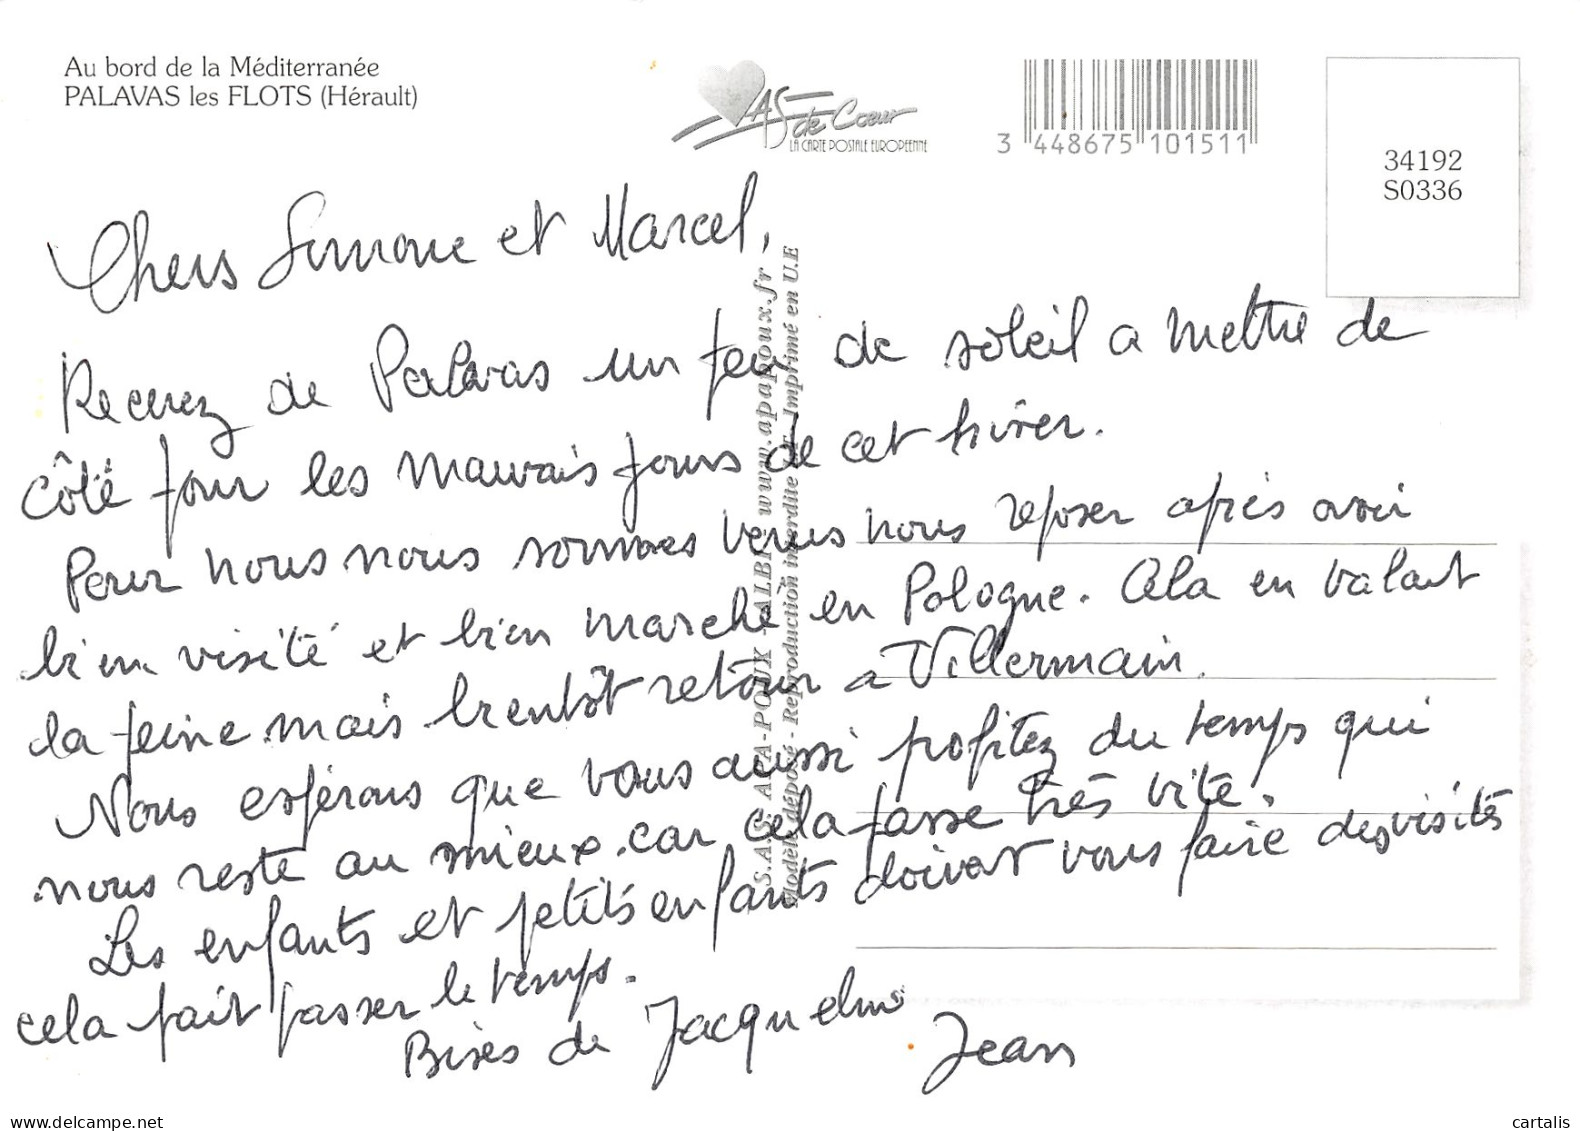 Au bord de la Méditerranée
PALAVAS les FLOTS (Hérault)
AS de Coeur
LA CARTE POSTALE EUROPEENNE
3 448675 101511
34192
S0336
Chers Simone et Marcel,
Recevez de Palavas un peu de soleil a mettre de
côté pour les mauvais jours de cet hiver.
Pour nous nous sommes venus nous reposer après avoir
bien visité et bien marché en Pologne. Cela en valait
la peine mais bientôt retour a Villermain.
Nous espérons que vous aussi profitez du temps qui
nous reste au mieux car cela passe très vite.
Les enfants et petits enfants doivent vous faire des visites
cela fait passer le temps.
Bises de Jacqueline
Jean
S.A.S. APA-POUX - ALBI - www.apapoux.fr
Modèle déposé - Reproduction interdite - Imprimé en U.E
my.delcampe.net
cartalis